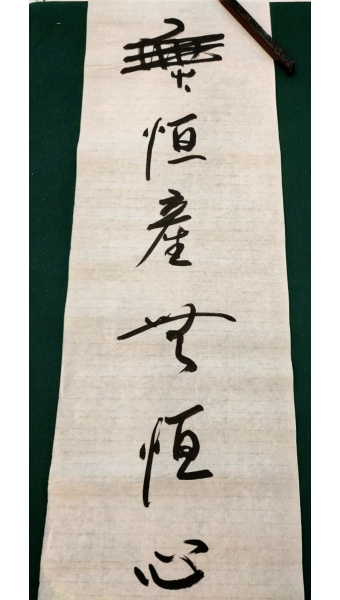 無恒產無恒心